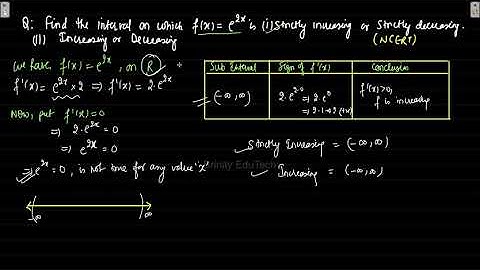 Q: Find the interval on which f(x) = e^2x is (i) Strictly increasing or Strictly decreasing.
(ii) Increasing or Decreasing (NCERT)
We have f(x) = e^2x, on R
f'(x) = e^2x × 2 ⇒ f'(x) = 2·e^2x
Now, put f'(x) = 0
⇒ 2·e^2x = 0
⇒ e^2x = 0
⇒ e^2x = 0, is not true for any value 'x'
-∞ ∞
Sub Interval Sign of f'(x) Conclusion
(-∞, ∞) 2·e^2·0 ⇒ 2·e^0 f'(x) > 0,
⇒ 2·1 ⇒ 2 (+ve) f is increasing
Strictly Increasing = (-∞, ∞)
Increasing = (-∞, ∞)